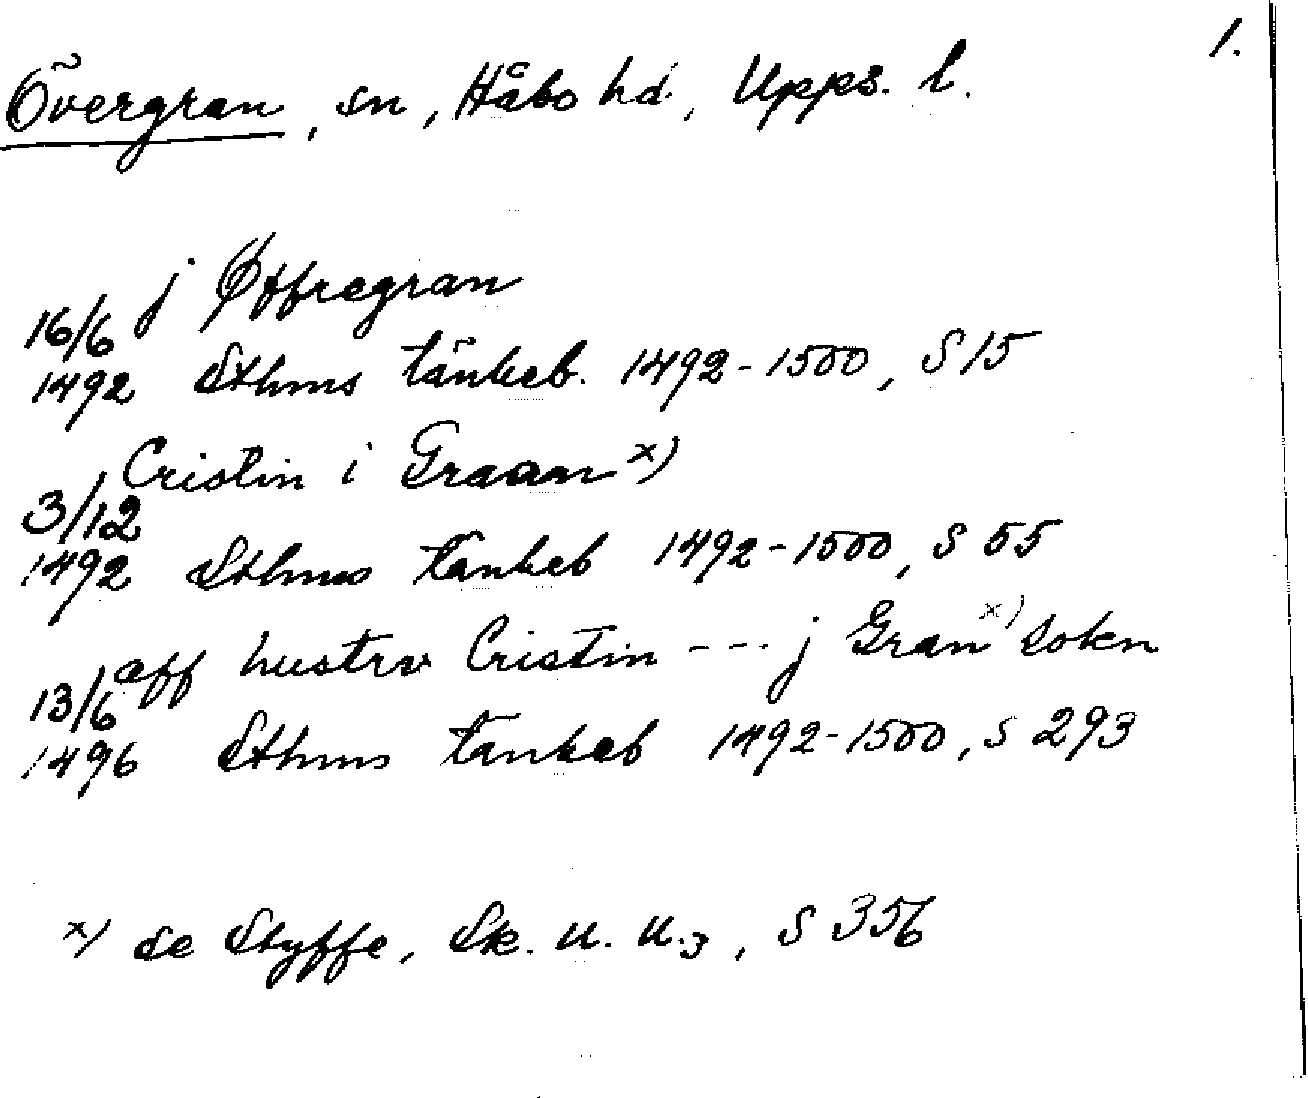 1.
Övergran, sn, Håbo hd, Upps. l.
j Øffregran
16/6
1492 Sthms tänkeb. 1492-1500, S 15
Cristin i Graan x)
3/12
1492 Sthms tänkeb 1492-1500, S 55
aff hustrv Cristin --- j Gran x) sokn
13/6
1496 Sthms tänkeb 1492-1500, s 293
x) se Styffe, Sk. u. u. 3, S 356